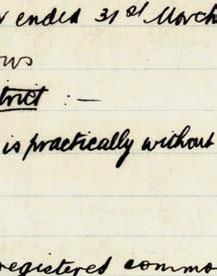 r ended 31st March
ows
trict :—
is practically without
registered commo